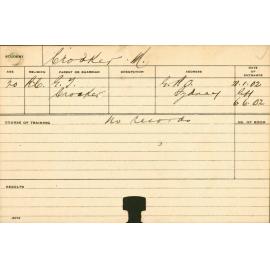 STUDENT Crooker M.
AGE RELIGION PARENT OR GUARDIAN OCCUPATION ADDRESS DATE OF ENTRANCE
20 R.C. G. J. G.P.O. 21.1.02
Crooker Sydney Left
6.6.02
COURSE OF TRAINING No records NO. OF ROOM
RESULTS
NOTE